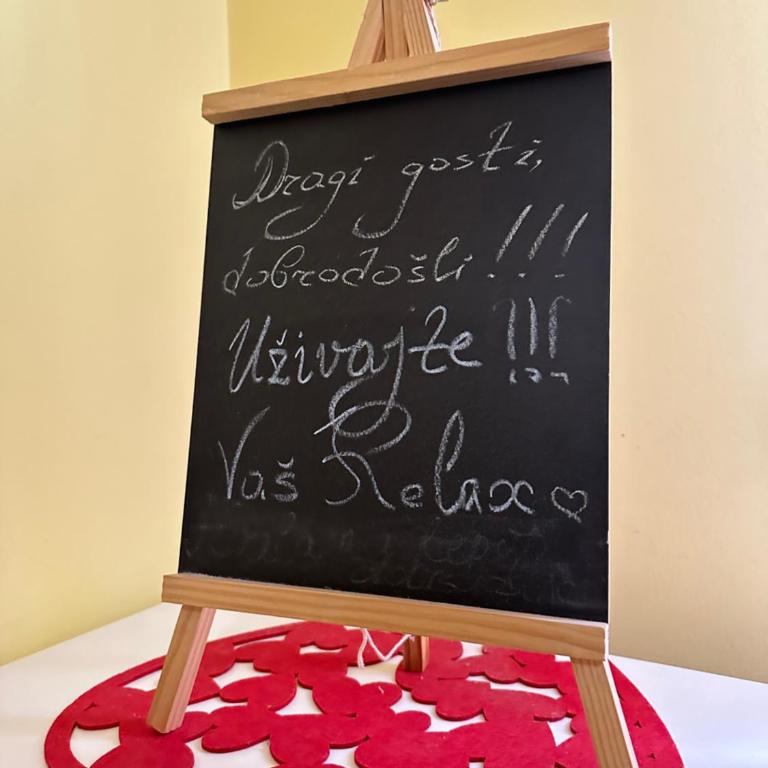 Dragi gosti,
dobrodošli!!!
Uživajte!!!
Vaš Relax♡